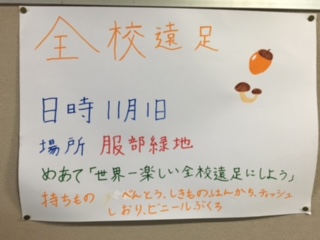 全校遠足
日時 11月1日
場所 服部緑地
めあて「世界一楽しい全校遠足にしよう」
持ちもの べんとう、しきもの、はんかち、ティッシュ
しおり、ビニールぶくろ